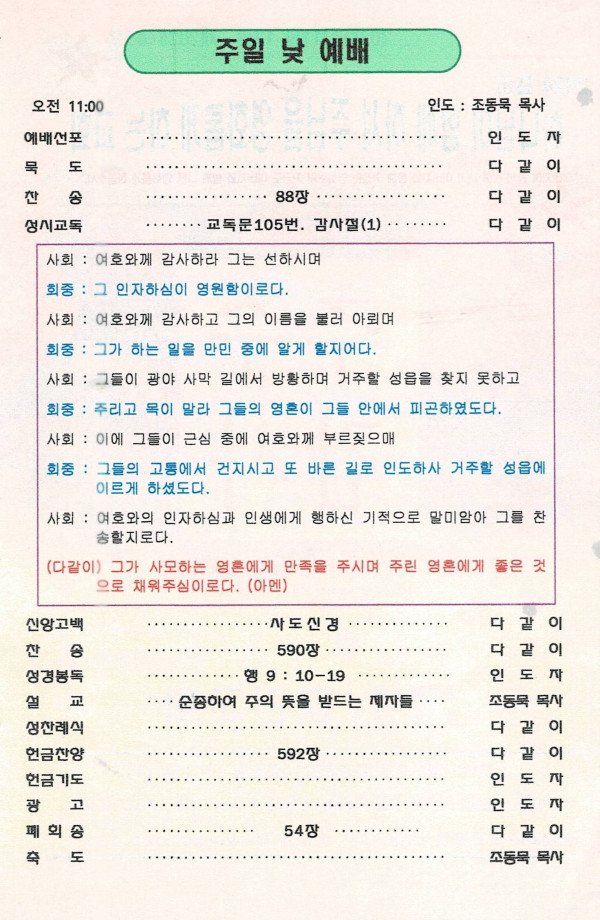 주일 낮 예배
오전 11:00 인도 : 조동묵 목사
예배선포 인 도 자
묵 도 다 같 이
찬 송 88장 다 같 이
성시교독 교독문105번. 감사절(1) 다 같 이
사회 : 여호와께 감사하라 그는 선하시며
회중 : 그 인자하심이 영원함이로다.
사회 : 여호와께 감사하고 그의 이름을 불러 아뢰며
회중 : 그가 하는 일을 만민 중에 알게 할지어다.
사회 : 그들이 광야 사막 길에서 방황하며 거주할 성읍을 찾지 못하고
회중 : 주리고 목이 말라 그들의 영혼이 그들 안에서 피곤하였도다.
사회 : 이에 그들이 근심 중에 여호와께 부르짖으매
회중 : 그들의 고통에서 건지시고 또 바른 길로 인도하사 거주할 성읍에
이르게 하셨도다.
사회 : 여호와의 인자하심과 인생에게 행하신 기적으로 말미암아 그를 찬
송할지로다.
(다같이) 그가 사모하는 영혼에게 만족을 주시며 주린 영혼에게 좋은 것
으로 채워주심이로다. (아멘)
신앙고백 사도신경 다 같 이
찬 송 590장 다 같 이
성경봉독 행 9 : 10-19 인 도 자
설 교 순종하여 주의 뜻을 받드는 제자들 조동묵 목사
성찬례식 다 같 이
헌금찬양 592장 다 같 이
헌금기도 인 도 자
광 고 인 도 자
폐 회 송 54장 다 같 이
축 도 조동묵 목사